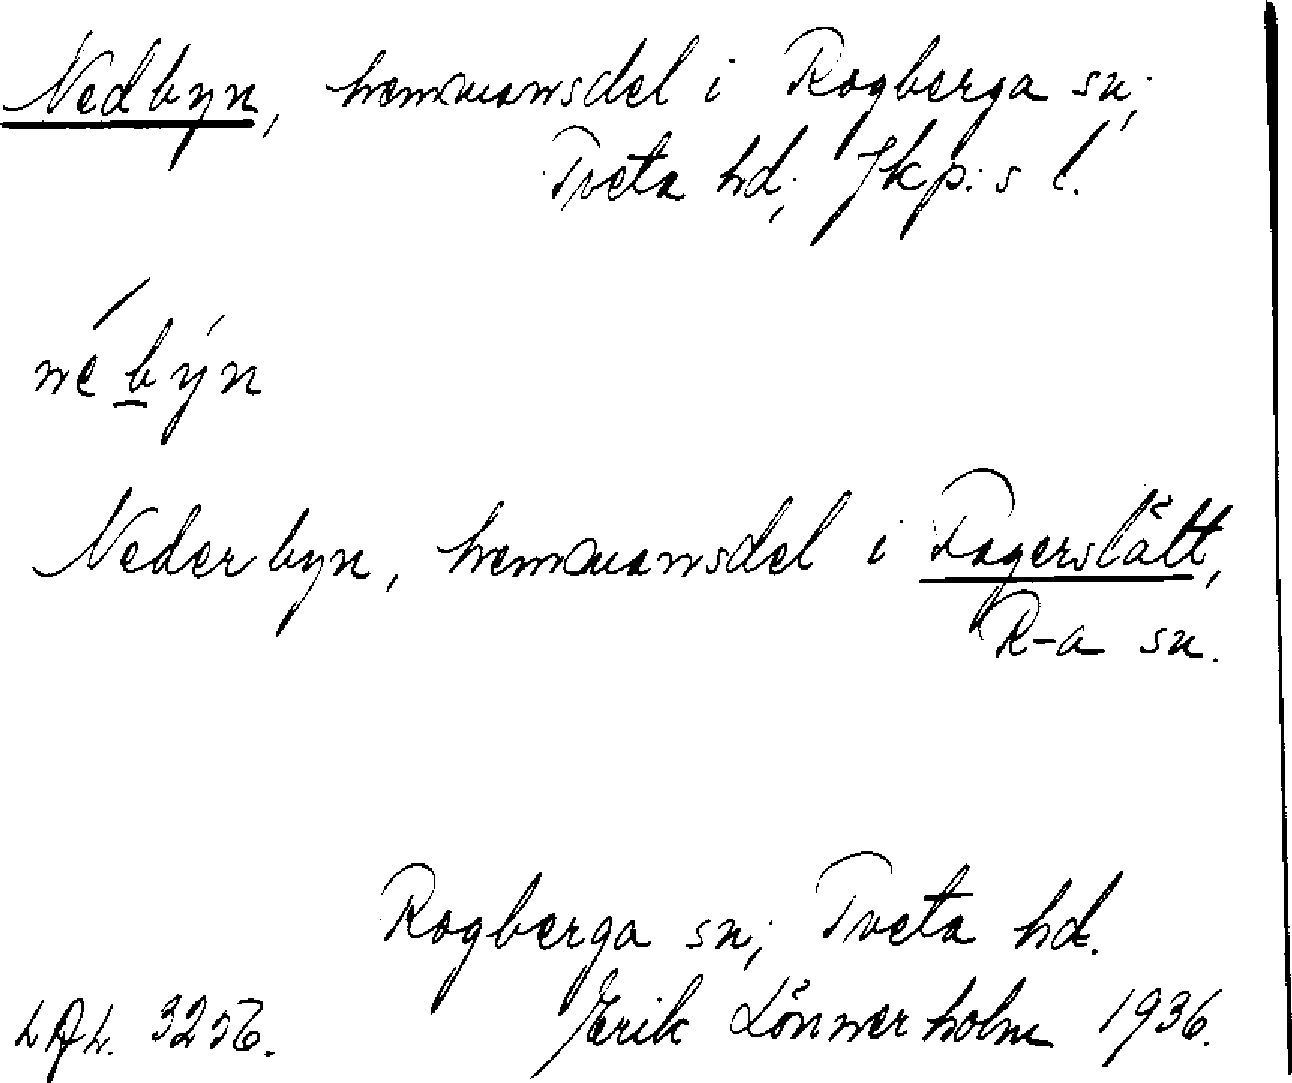 Nedbyn, hemmansdel i Rogberga sn;
Tveta hd; Jkp:s l.
né býn
Nederbyn, hemmansdel i Fagerslätt,
R-a sn.
Rogberga sn; Tveta hd.
LAL. 3256. Erik Lönnerholm 1936.